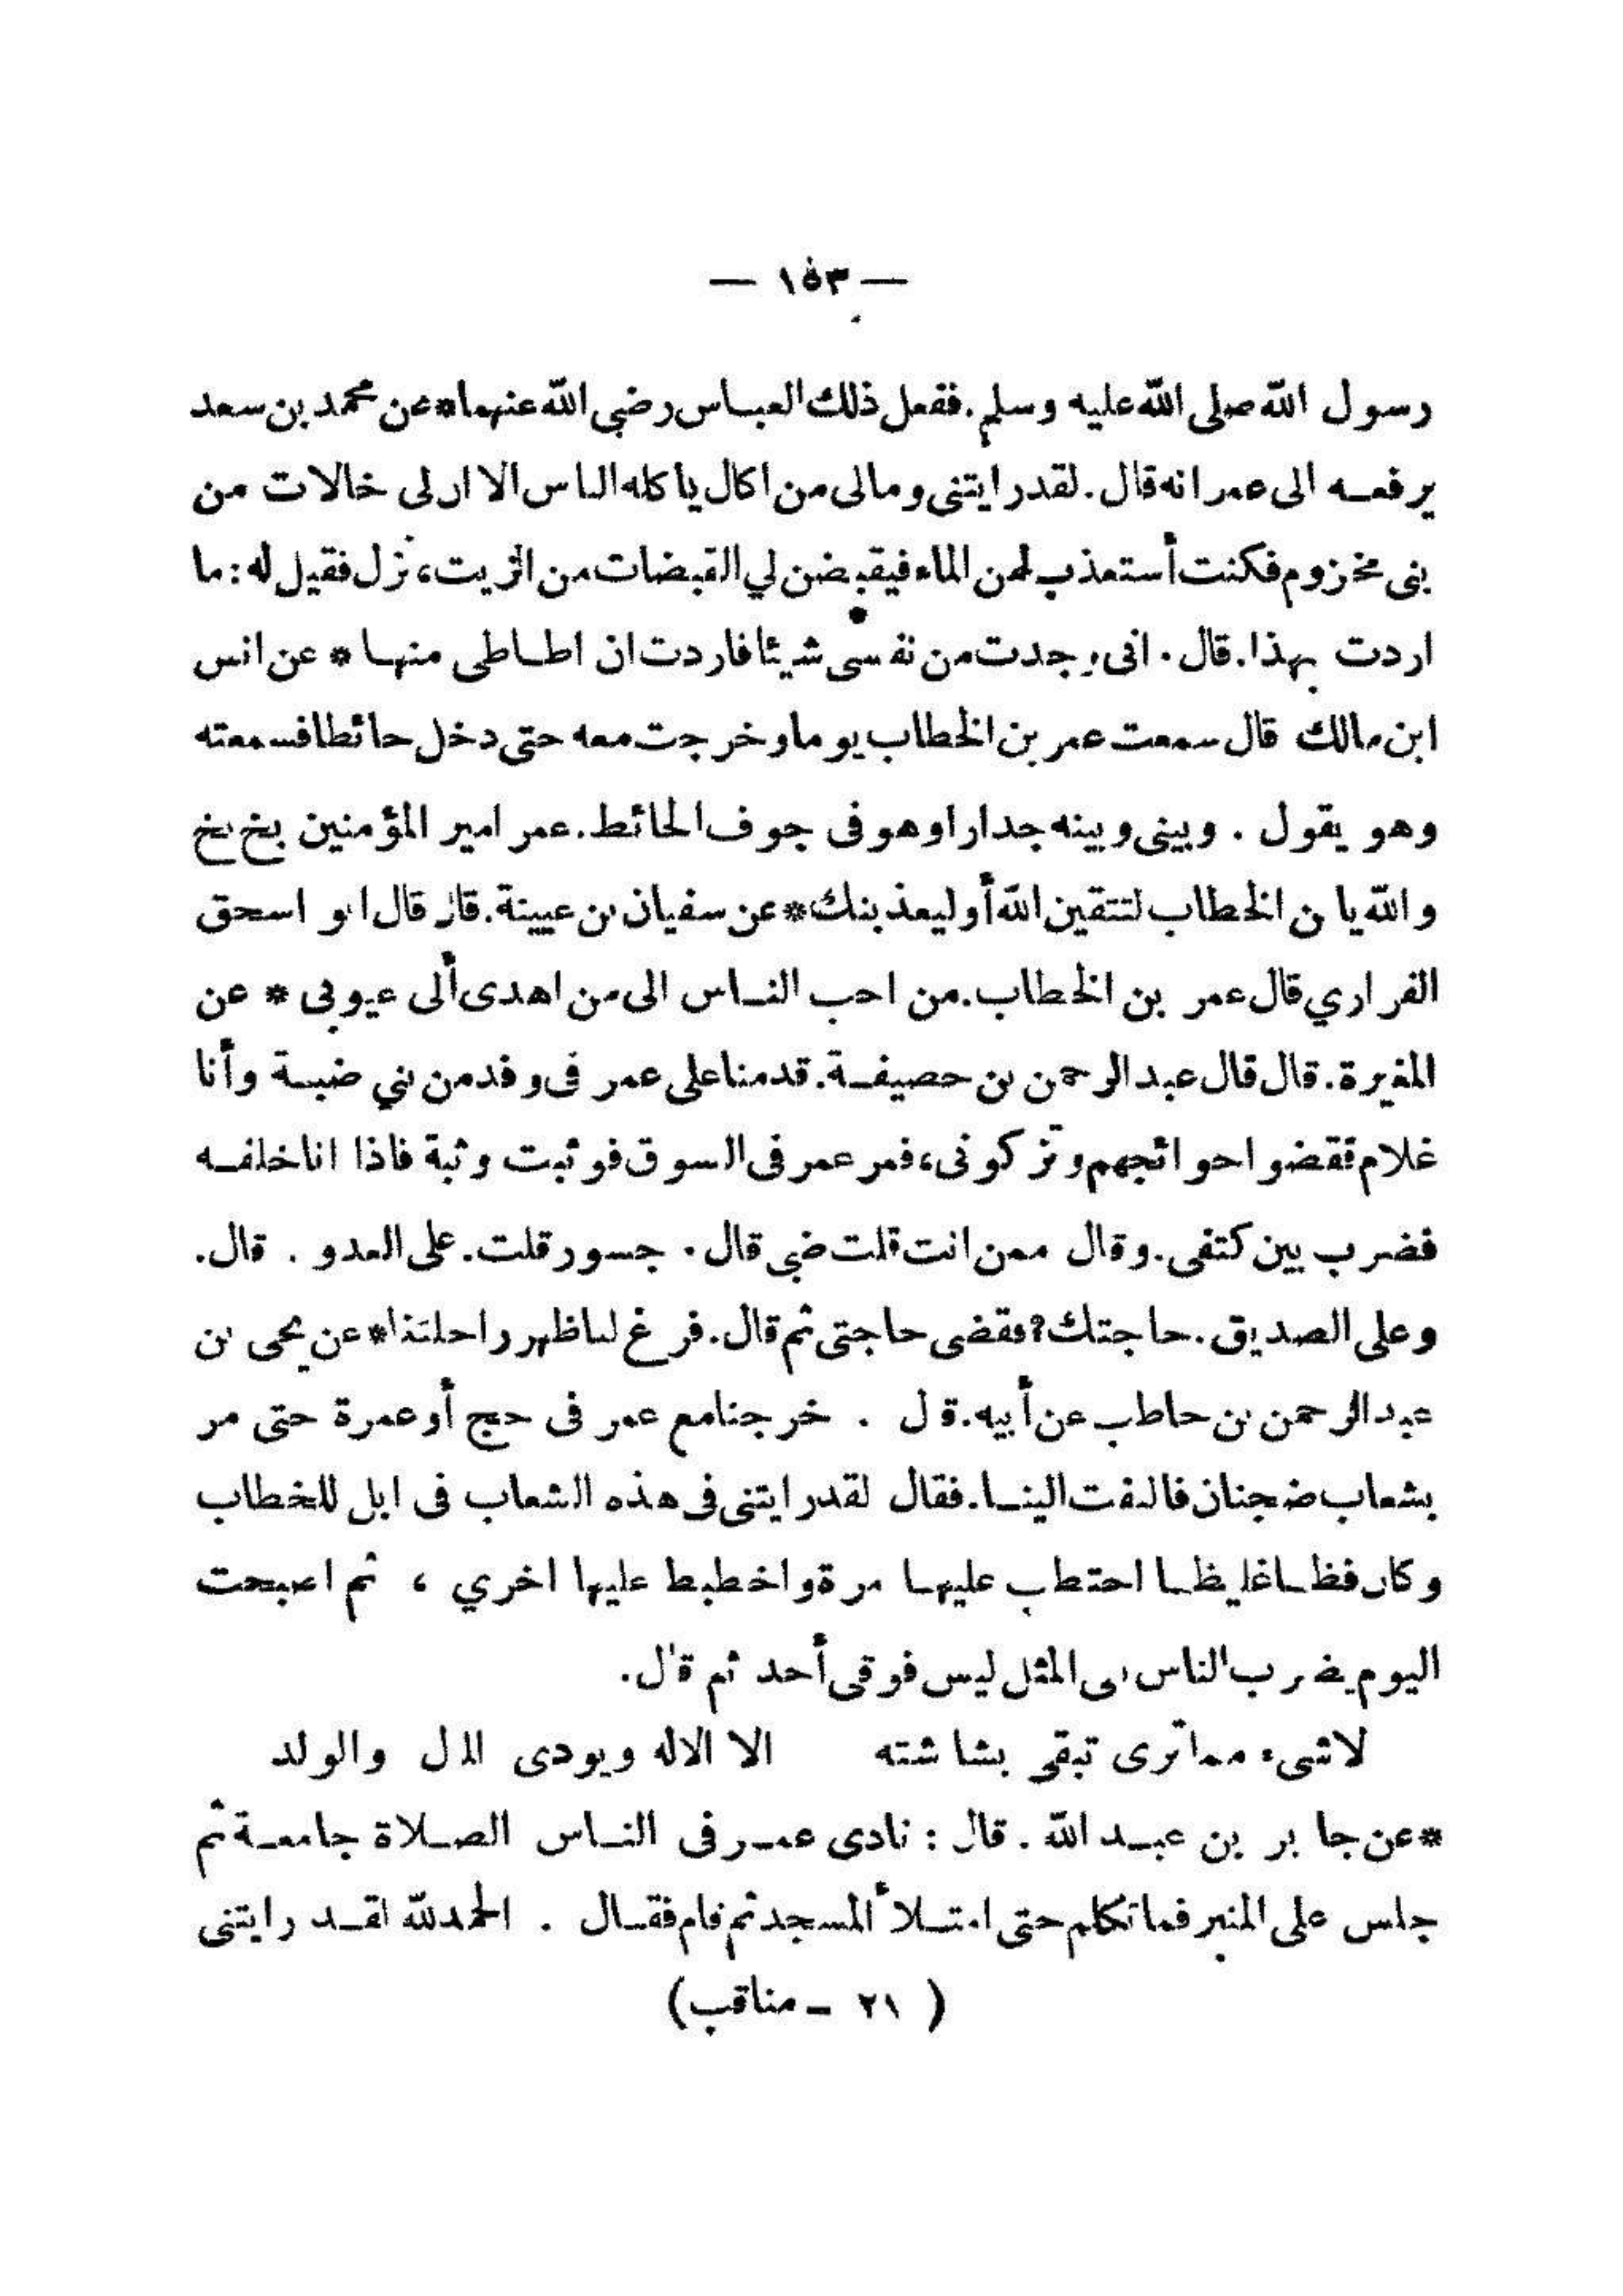 — ١٥٣ —
رسول الله صلى الله عليه وسلم. ففعل ذلك العباس رضي الله عنهما * عن محمد بن سعد
يرفعه الى عمر انه قال. لقد رايتنى ومالى من اكال ياكله الناس الا ان لى خالات من
بنى مخزوم فكنت أستعذب لهن الماء فيقبضن لي القبضات من الزبيب، نزل فقيل له: ما
اردت بهذا. قال. انى وجدت من نفسى شيئا فاردت ان اطاطى منها * عن انس
ابن مالك قال سمعت عمر بن الخطاب يوما وخرجت معه حتى دخل حائطا فسمعته
وهو يقول. وبينى وبينه جدار اوهو فى جوف الحائط. عمر امير المؤمنين بخ بخ
والله يا بن الخطاب لتتقين الله أو ليعذبنك * عن سفيان بن عيينة. قال قال ابو اسحق
الفراري قال عمر بن الخطاب. من احب الناس الى من اهدى ألى عيوبى * عن
المغيرة. قال قال عبد الرحمن بن حصيفة. قدمنا على عمر فى وفد من بني ضبة وأنا
غلام فقضوا حوائجهم وتركونى، فمر عمر فى السوق فوثبت وثبة فاذا انا خلفه
فضرب بين كتفى. وقال ممن انت قلت ضبى قال. جسور قلت. على العدو. قال.
وعلى الصديق. حاجتك؟ فقضى حاجتى ثم قال. فرغ لنا ظهر راحلتنا * عن يحى بن
عبد الرحمن بن حاطب عن أبيه. قال. خرجنا مع عمر فى حج أو عمرة حتى مر
بشعاب ضجنان فالتفت الينا. فقال لقد رايتنى فى هذه الشعاب فى ابل للخطاب
وكان فظا غليظا احتطب عليها مرة واخطبط عليها اخري ، ثم اصبحت
اليوم يضرب الناس بى المثل ليس فوقى أحد ثم قال.
لاشىء مما ترى تبقى بشاشته الا الاله ويودى المال والولد
* عن جابر بن عبد الله. قال: نادى عمر فى الناس الصلاة جامعة ثم
جلس على المنبر فما تكلم حتى امتلأ المسجد ثم قام فقال. الحمدلله لقد رايتنى
( ٢١ – مناقب)